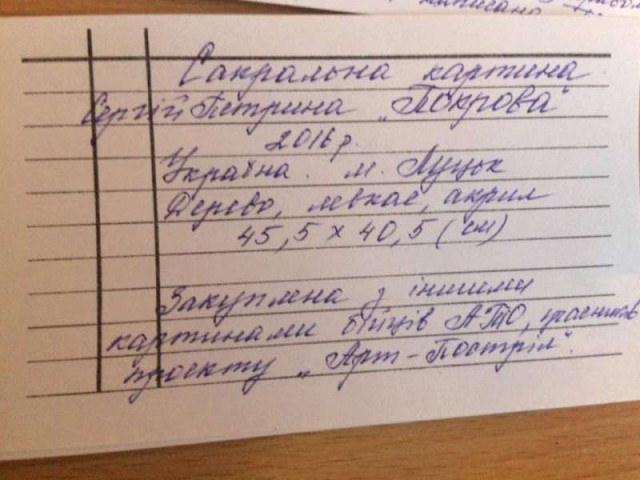 написано
Сакральна картина
Сергій Петрина „Покрова"
2016 р.
Україна. м. Луцьк
Дерево, левкас, акрил
45,5 x 40,5 (см)
Закуплена з іншими
картинами бійців АТО, учасників
проєкту „Арт-Постріл".